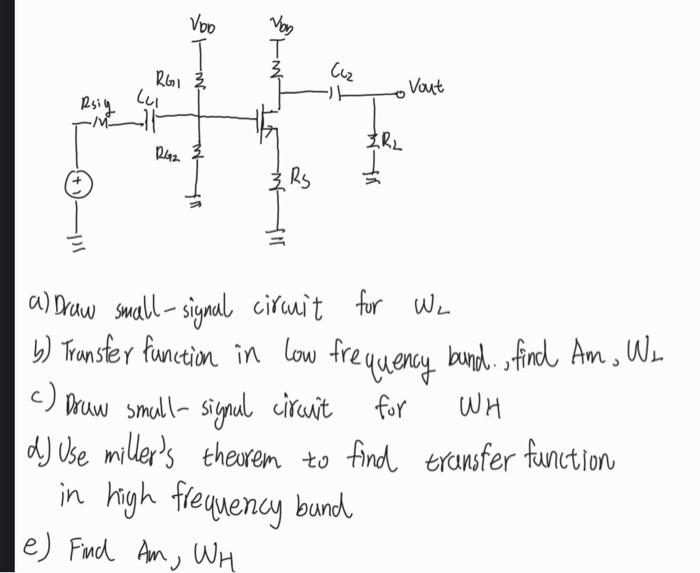 VDD
VDD
RG1
CC2
Vout
Rsig
CC1
RL
RG2
RS
a) Draw small-signal circuit for WL
b) Transfer function in low frequency band., find Am, WL
c) Draw small-signal circuit for WH
d) Use miller's theorem to find transfer function
in high frequency band
e) Find Am, WH